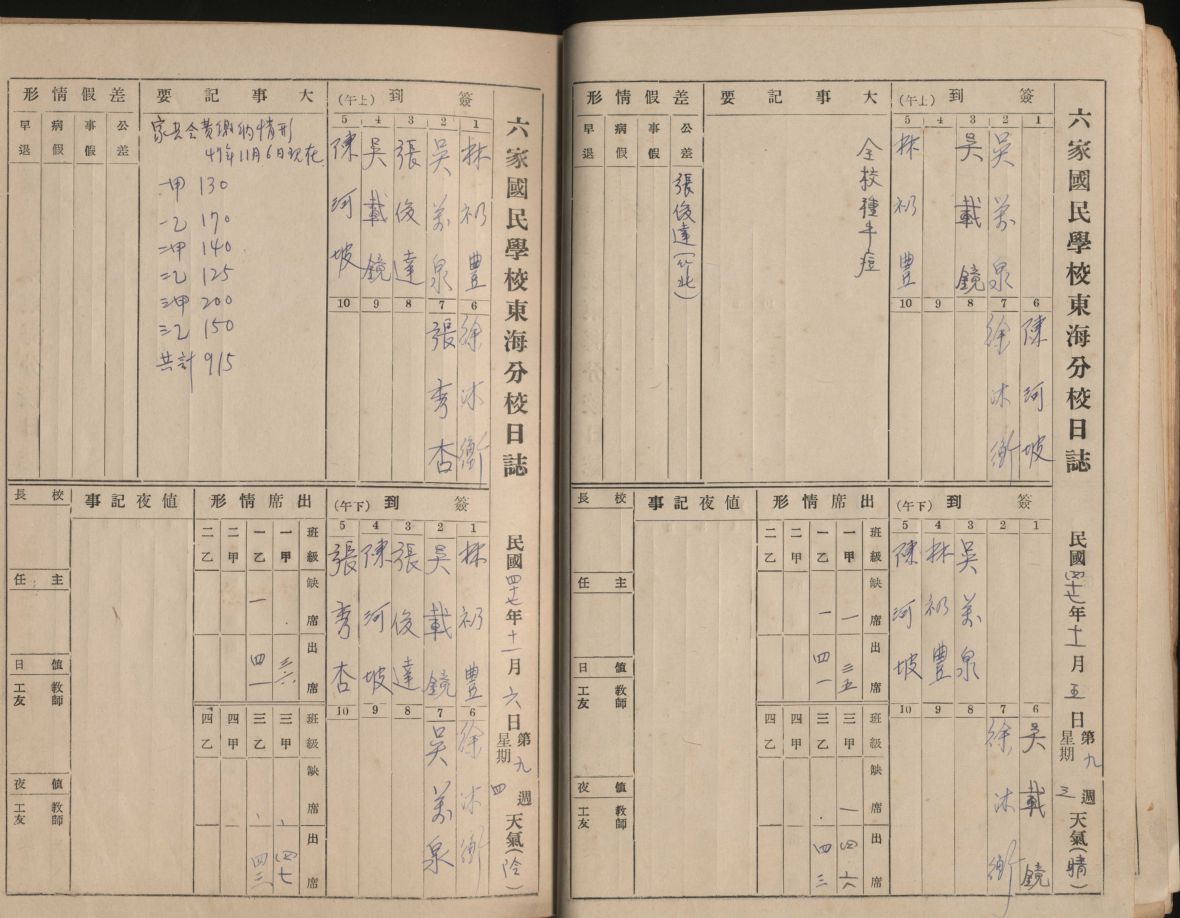 六家國民學校東海分校日誌
民國四十七年十一月五日第九週星期三天氣(晴)
簽到(上午)
1
2 吳萬泉
3 吳載鏡
4
5 林礽豐
6 陳河坡
7 徐沐衡
8
9
10
大事記要
全校種牛痘
差假情形
公差 張俊達(竹北)
事假
病假
早退
簽到(下午)
1
2
3 吳萬泉
4 林礽豐
5 陳河坡
6 吳載鏡
7 徐沐衡
8
9
10
出席情形
班級 缺席 出席
一甲 一 三五
一乙 一 四一
二甲
二乙
班級 缺席 出席
三甲 一 四六
三乙 . 四三
四甲
四乙
值夜記事
校長
主任
值日 教師 工友
值夜 教師 工友
六家國民學校東海分校日誌
民國四十七年十一月六日第九週星期四天氣(陰)
簽到(上午)
1 林礽豐
2 吳萬泉
3 張俊達
4 吳載鏡
5 陳河坡
6 徐沐衡
7 張秀杏
8
9
10
大事記要
家長會費繳納情形
47年11月6日現在
一甲 130
一乙 170
二甲 140
二乙 125
三甲 200
三乙 150
共計 915
差假情形
公差
事假
病假
早退
簽到(下午)
1 林礽豐
2 吳載鏡
3 張俊達
4 陳河坡
5 張秀杏
6 徐沐衡
7 吳萬泉
8
9
10
出席情形
班級 缺席 出席
一甲 . 三六
一乙 一 四一
二甲
二乙
班級 缺席 出席
三甲 . 四七
三乙 . 四三
四甲
四乙
值夜記事
校長
主任
值日 教師 工友
值夜 教師 工友